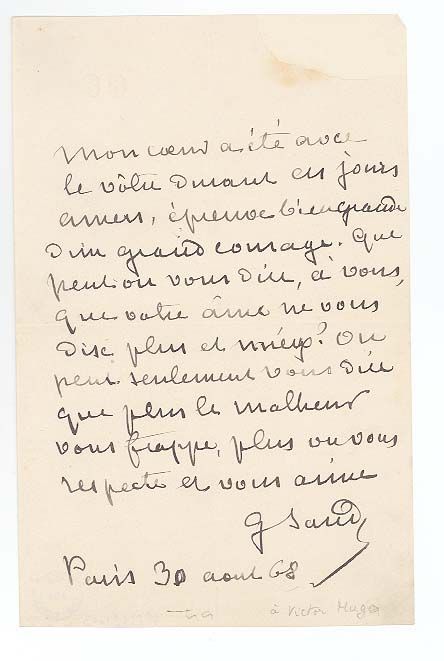 Mon cœur a été avec
le vôtre durant ces jours
amers, épreuve bien grande
d'un grand courage. Que
peut on vous dire, à vous,
que votre âme ne vous
dise plus et mieux? On
peut seulement vous dire
que plus le malheur
vous frappe, plus on vous
respecte et vous aime
G Sand
Paris 30 aout 68
à Victor Hugo